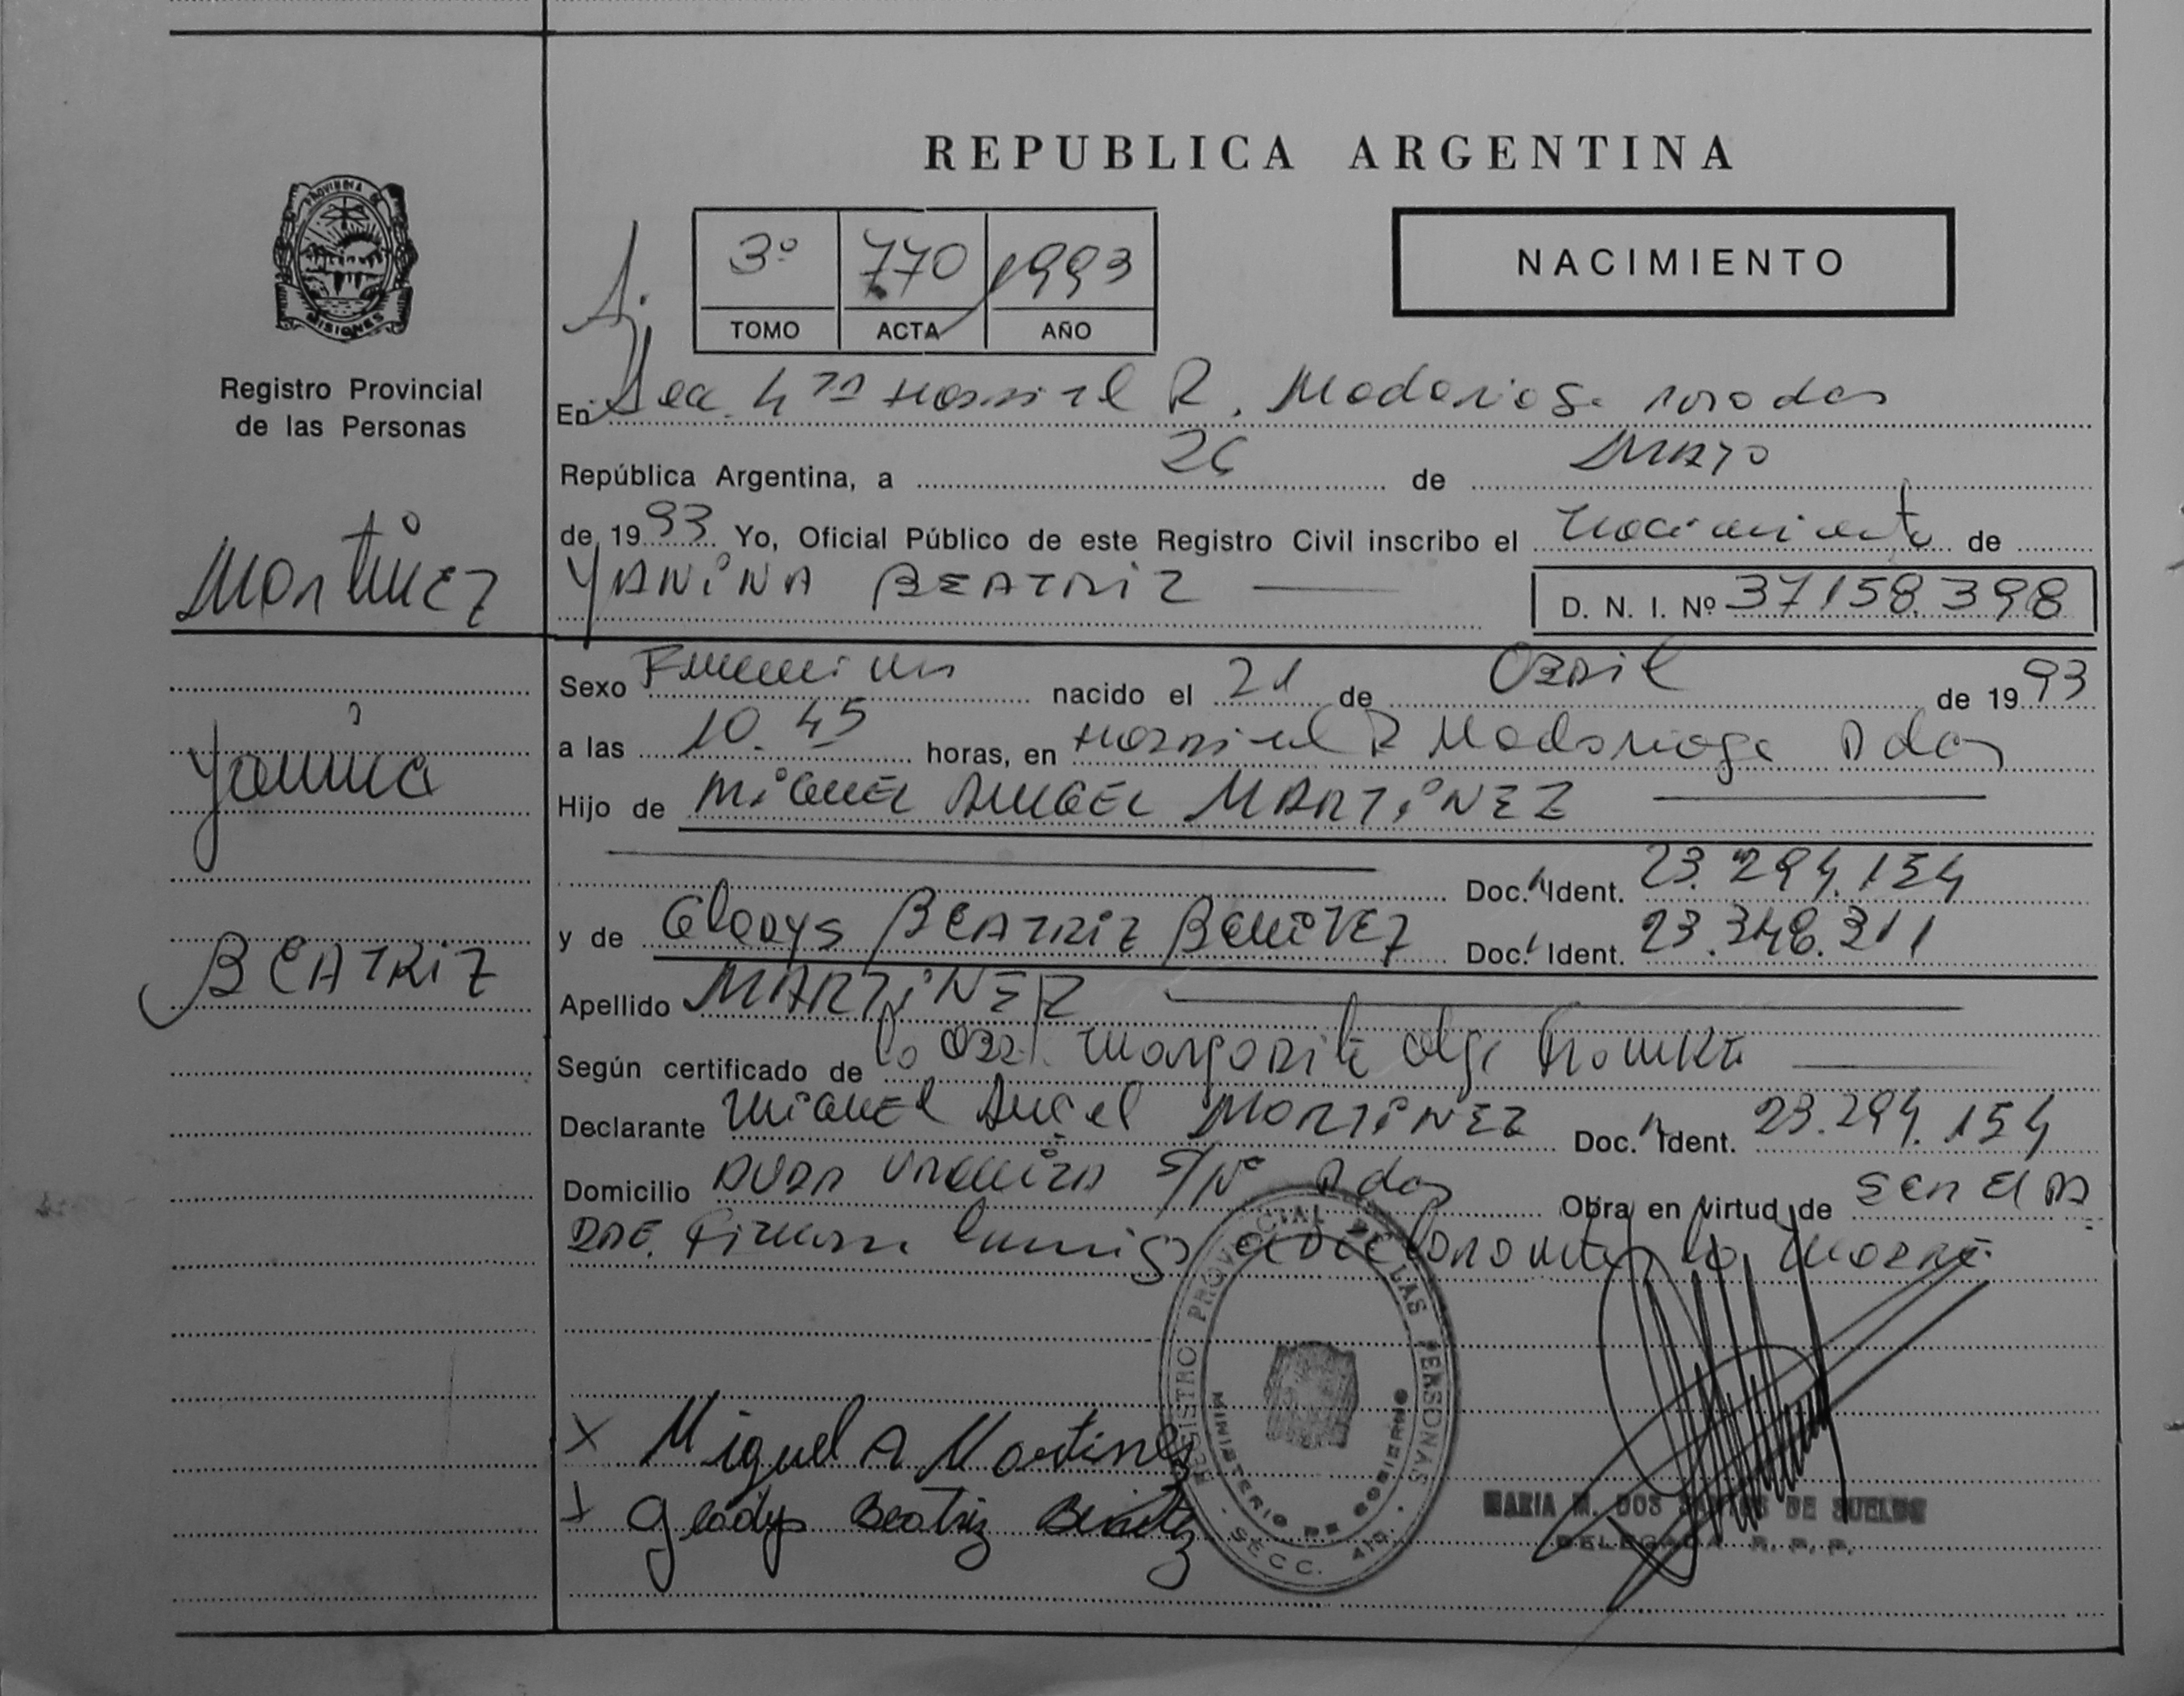 REPUBLICA ARGENTINA
PROVINCIA DE MISIONES
Registro Provincial
de las Personas
3º 770 1993
TOMO ACTA AÑO
NACIMIENTO
En Secc. 4ta Hospital R. Madariaga Posadas
República Argentina, a 26 de Mayo
de 1993 Yo, Oficial Público de este Registro Civil inscribo el Nacimiento de
YANINA BEATRIZ
D. N. I. Nº 37158.398
Martinez
Yanina
BEATRIZ
Sexo Femenino nacido el 21 de Abril de 1993
a las 10.45 horas, en Hospital R Madariaga Pdas
Hijo de MIGUEL ANGEL MARTINEZ
Doc. Ident. 23.294.154
y de Gladys BEATRIZ BENITEZ Doc. Ident. 23.348.311
Apellido MARTINEZ
Según certificado de la Obst. Margarita Olga
Declarante MIGUEL Angel MARTINEZ Doc. Ident. 23.294.154
Domicilio AVDA URQUIZA S/Nº Pdas Obra en virtud de SER EL PA
DRE. Firman conmigo el declarante y la madre.
X Miguel A Martinez
X Gladys Beatriz Benitez
REGISTRO PROVINCIAL DE LAS PERSONAS
MINISTERIO DE GOBIERNO
SECC. 4ta.
MARIA M. DOS SANTOS DE SUELDO
DELEGADA R. P. P.